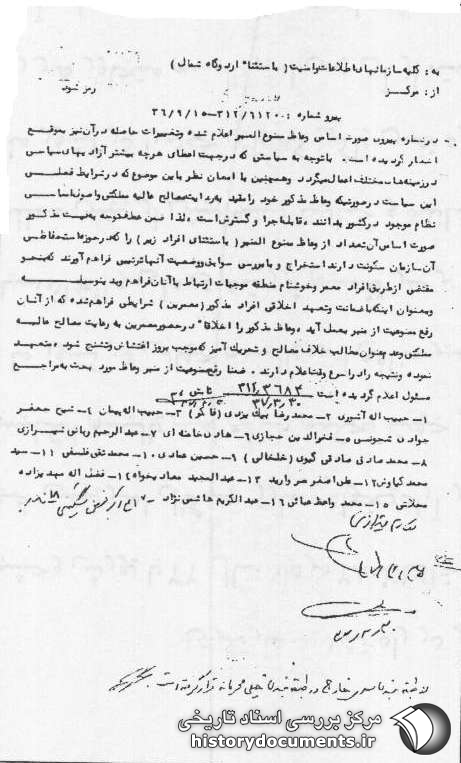 به : کلیه سازمانهای اطلاعات و امنیت ( باستثناء اردوگاه شمال )
از : مرکز رمز شود
پیرو شماره : ۳۱۲/۶۱۲۰۰-۳۶/۹/۱۵
در شماره پیروی صورت اسامی وعاظ ممنوع المنبر اعلام شده و تغییرات حاصله در آن نیز بموقع
اشعار گردیده است . باتوجه به سیاستی که درجهت اعطای هرچه بیشتر آزادیهای سیاسی
در زمینه های مختلف اعمال میگردد وهمچنین با امعان نظر باین موضوع که در شرایط فعلی
این سیاست در صورتیکه وعاظ مذکور خود را مقید به رعایت مصالح عالیه مملکتی و اصول اساسی
نظام موجود در کشور بدانند ، قابل اجرا و گسترش است ، لذا ضمن عطف توجه به لیست مذکور
صورت اسامی آن تعداد از وعاظ ممنوع المنبر ( باستثنای افراد زیر ) را که در حوزه استحفاظی
آن سازمان سکونت دارند استخراج و با بررسی سوابق و وضعیت آنها ترتیبی فراهم آورند که بنحو
مقتضی از طریق افراد معمر و خوشنام منطقه موجبات ارتباط با آنان فراهم و بدینوسیله
و بعنوان اینکه با ضمانت و تعهد اخلاقی افراد مذکور ( معمرین ) شرایطی فراهم شده که از آنان
رفع ممنوعیت از منبر بعمل آید ، وعاظ مذکور را اخلاقا" در حضور معمرین به رعایت مصالح عالیه
مملکتی و عدم عنوان مطالب خلاف مصالح و تحریک آمیز که موجب بروز اغتشاش و تشنج شود ، متعهد
نموده و نتیجه را در اسرع وقت اعلام دارند . ضمنا" رفع ممنوعیت از منبر وعاظ مورد بحث به مراجع
مسئول اعلام گردیده است . ۳۱۲/۳۶۸۴
۳۷/۳/۳۰
۱- حبیب اله آشوری ۲- محمدرضا بیک یزدی (فاکر) ۳- حبیب اله پیمان ۴- شیخ جعفر
جوادی شجونی ۵- فخرالدین حجازی ۶- هادی خامنه ای ۷- عبدالرحیم ربانی شیرازی
۸- محمد صادق صادقی گیوی (خلخالی) ۹- حسین عمادی ۱۰- محمد تقی فلسفی ۱۱- سید
محمد کیاوش ۱۲- علی اصغر مروارید ۱۳- عبدالمجید معادیخواه ۱۴- فضل اله مهدیزاده
محلاتی ۱۵- محمد واعظ عبائی ۱۶- عبدالکریم هاشمی نژاد
مرکز بررسی اسناد تاریخی
historydocuments.ir